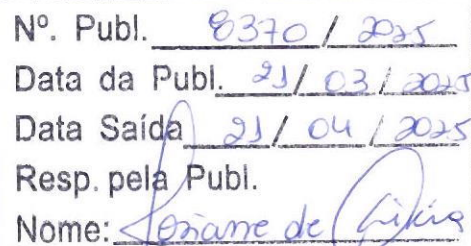 Nº. Publ. 8370 / 2025
Data da Publ. 21 / 03 / 2025
Data Saída 21 / 04 / 2025
Resp. pela Publ.
Nome: de